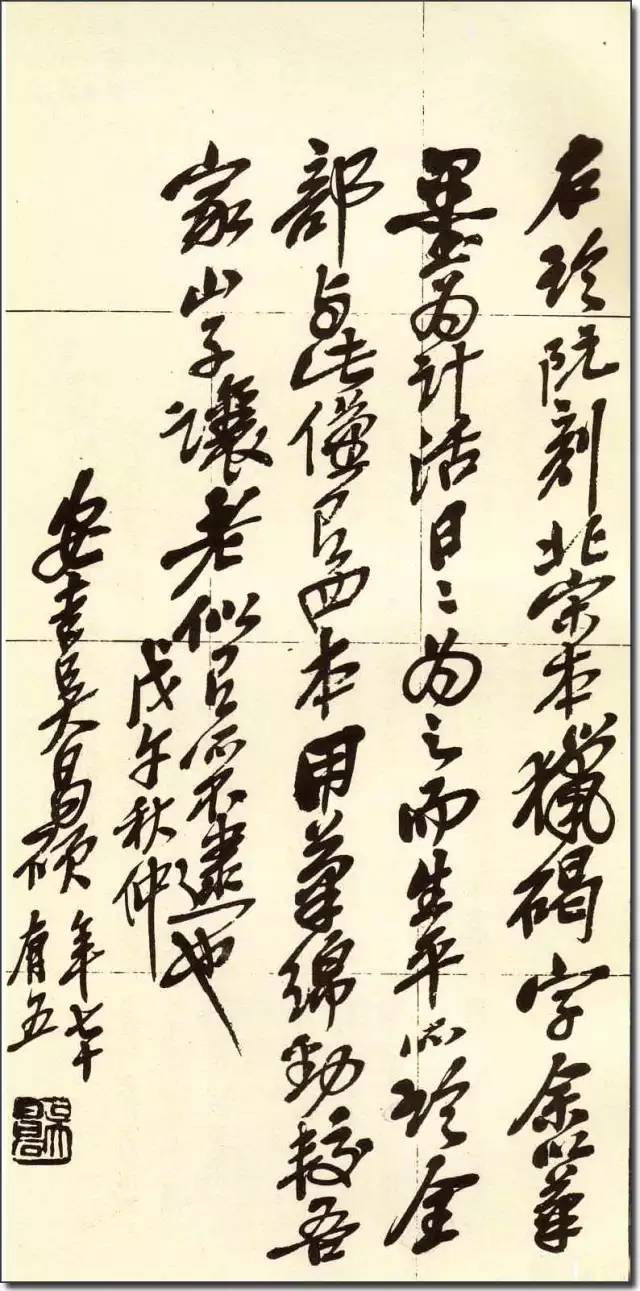 右臨阮刻北宋本獵碣字余以筆
墨為計活日二為之而生平所臨全
部與此僅有四本用筆綿勁較吾
家山子讓老似有所不逮也
戊午秋仲
安吉吳昌碩年七十
有五